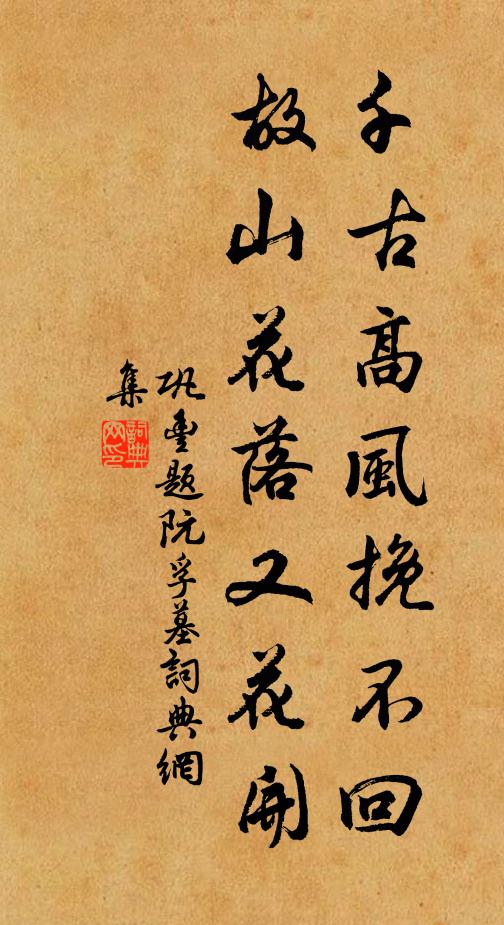 千古高風挽不回
故山花落又花開
巩豊題阮孚墓詞典網
集
詞典
网印